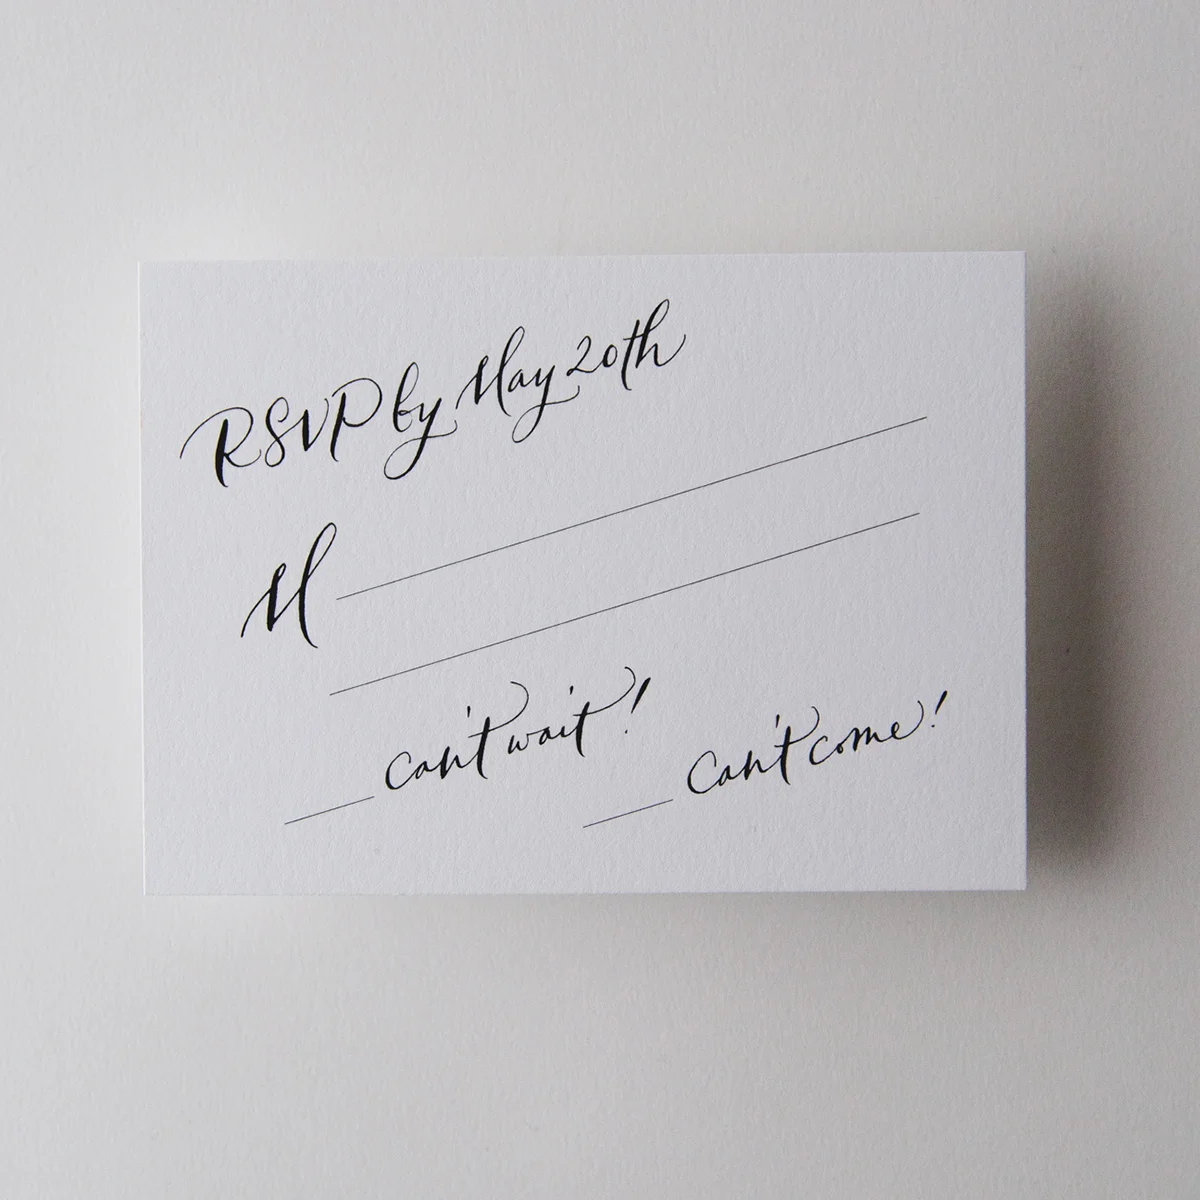 RSVP by May 20th
M
can't wait!
Can't come!